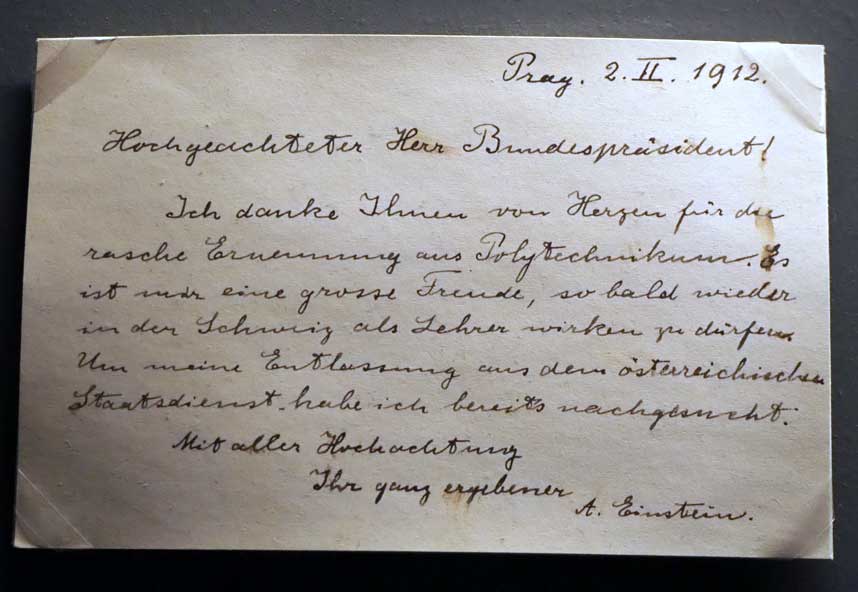 Prag. 2. II. 1912.
Hochgeachteter Herr Bundespräsident!
Ich danke Ihnen von Herzen für die
rasche Ernennung ans Polytechnikum. Es
ist mir eine grosse Freude, so bald wieder
in der Schweiz als Lehrer wirken zu dürfen.
Um meine Entlassung aus dem österreichischen
Staatsdienst habe ich bereits nachgesucht.
Mit aller Hochachtung
Ihr ganz ergebener
A. Einstein.